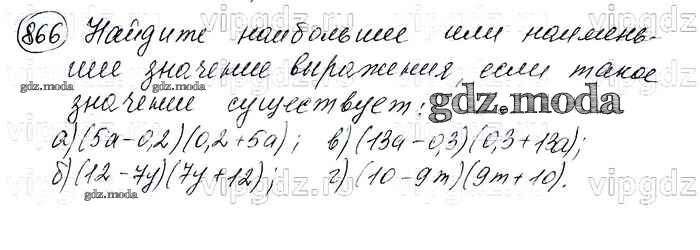 866 Найдите наибольшее или наимень-
шее значение выражения, если такое
значение существует:
а) (5a - 0,2)(0,2 + 5a); в) (13a - 0,3)(0,3 + 13a);
б) (12 - 7y)(7y + 12); г) (10 - 9m)(9m + 10).
gdz.moda
gdz.moda
gdz.moda
gdz.moda
vipgdz.ru